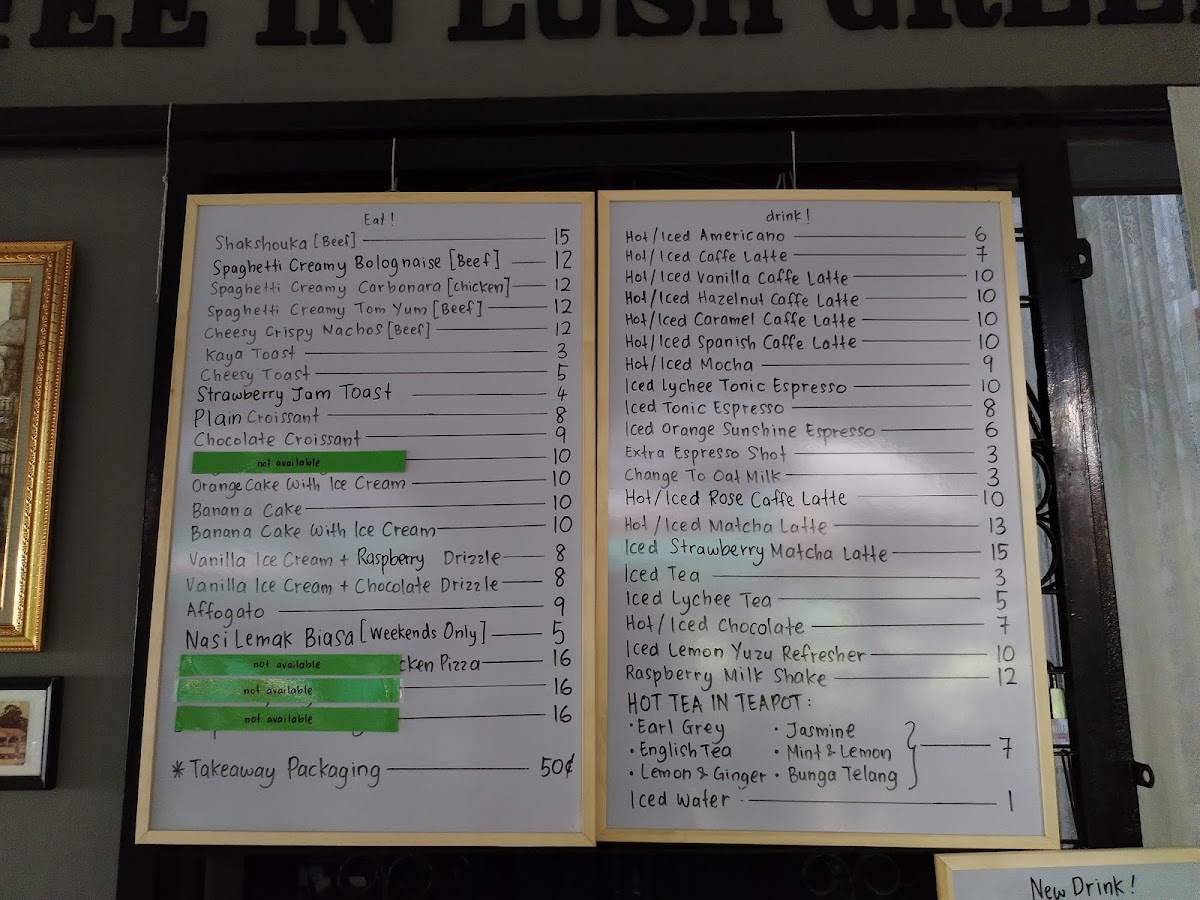 IN LUSH
Eat!
Shakshouka [Beef] 15
Spaghetti Creamy Bolognaise [Beef] 12
Spaghetti Creamy Carbonara [Chicken] 12
Spaghetti Creamy Tom Yum [Beef] 12
Cheesy Crispy Nachos [Beef] 12
Kaya Toast 3
Cheesy Toast 5
Strawberry Jam Toast 4
Plain Croissant 8
Chocolate Croissant 9
not available 10
Orange Cake With Ice Cream 10
Banana Cake 10
Banana Cake With Ice Cream 10
Vanilla Ice Cream + Raspberry Drizzle 8
Vanilla Ice Cream + Chocolate Drizzle 8
Affogato 9
Nasi Lemak Biasa [Weekends Only] 5
not available cken Pizza 16
not available 16
not available 16
* Takeaway Packaging 50¢
drink!
Hot/Iced Americano 6
Hot/Iced Caffe Latte 7
Hot/Iced Vanilla Caffe Latte 10
Hot/Iced Hazelnut Caffe Latte 10
Hot/Iced Caramel Caffe Latte 10
Hot/Iced Spanish Caffe Latte 10
Hot/Iced Mocha 9
Iced Lychee Tonic Espresso 10
Iced Tonic Espresso 8
Iced Orange Sunshine Espresso 6
Extra Espresso Shot 3
Change To Oat Milk 3
Hot/Iced Rose Caffe Latte 10
Hot/Iced Matcha Latte 13
Iced Strawberry Matcha Latte 15
Iced Tea 3
Iced Lychee Tea 5
Hot/Iced Chocolate 7
Iced Lemon Yuzu Refresher 10
Raspberry Milk Shake 12
HOT TEA IN TEAPOT:
• Earl Grey • Jasmine
• English Tea • Mint & Lemon 7
• Lemon & Ginger • Bunga Telang
Iced Water 1
New Drink!